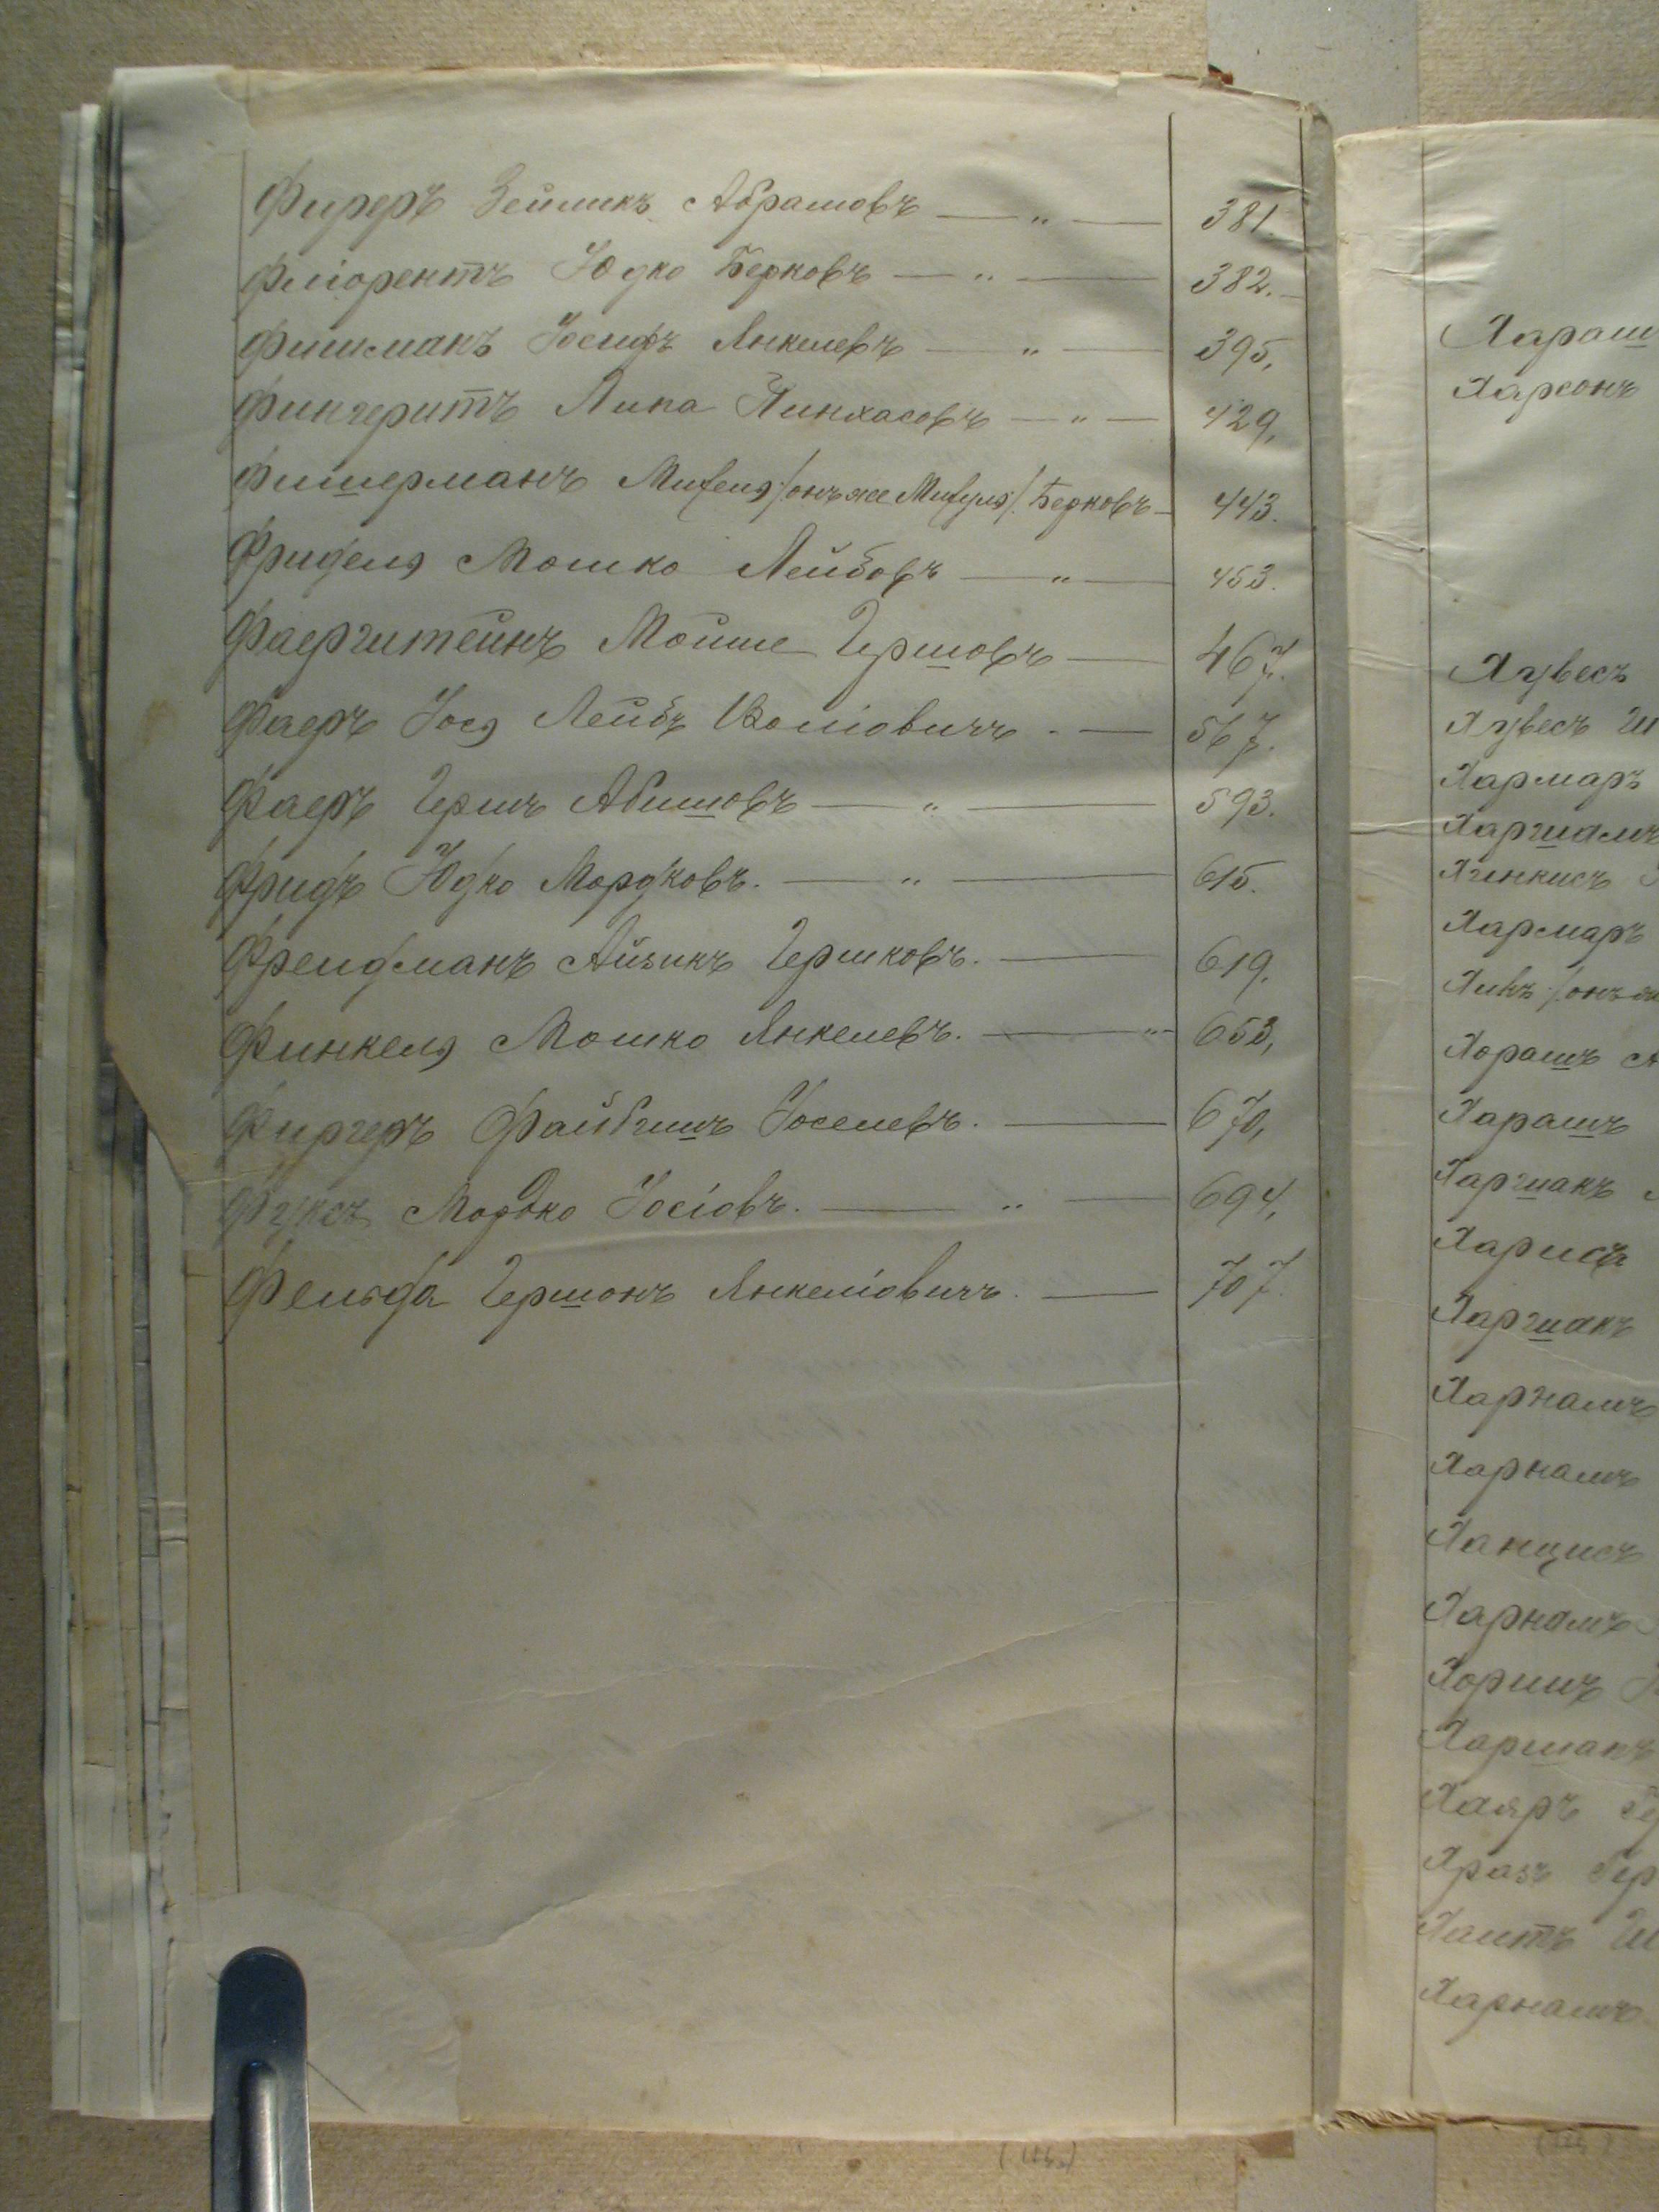 Фиреръ Зейликъ Абрамовъ — „ — 381.
Флiорентъ Юдко Берковъ — „ — 382.
Фишманъ Iосифъ Янкелевъ — „ — 395,
Фингеритъ Липа Пинхасовъ — „ — 429,
Фишерманъ Мифеля /онъ же Мифуля/ Берковъ — 443.
Фридель Мошко Лейбовъ — „ — 453.
Фаерштейнъ Мойше Гершовъ — 467.
Фаеръ Iось Лейбъ Волiовичъ — 567.
Фаеръ Гершъ Абишовъ — „ — 593.
Фридъ Юдко Мордковъ. — „ — 615.
Фрейдманъ Айзикъ Гершковъ. — 619,
Финкель Мошко Янкелевъ. — „ — 653,
Фиргеръ Файбишъ Iоселевъ. — 670,
Фуксъ Мордко Iосiовъ. — „ — 694,
Фельда Гершонъ Янкелiовичъ. — 707.
Хараш
Харсонъ
Хармаръ
Хармаръ
Хорашъ
Харашъ
Харнамъ
Харнамъ
Ханцисъ
Харнамъ
Хаяръ
Хразъ Гер
Хаитъ Ш
Харнамъ